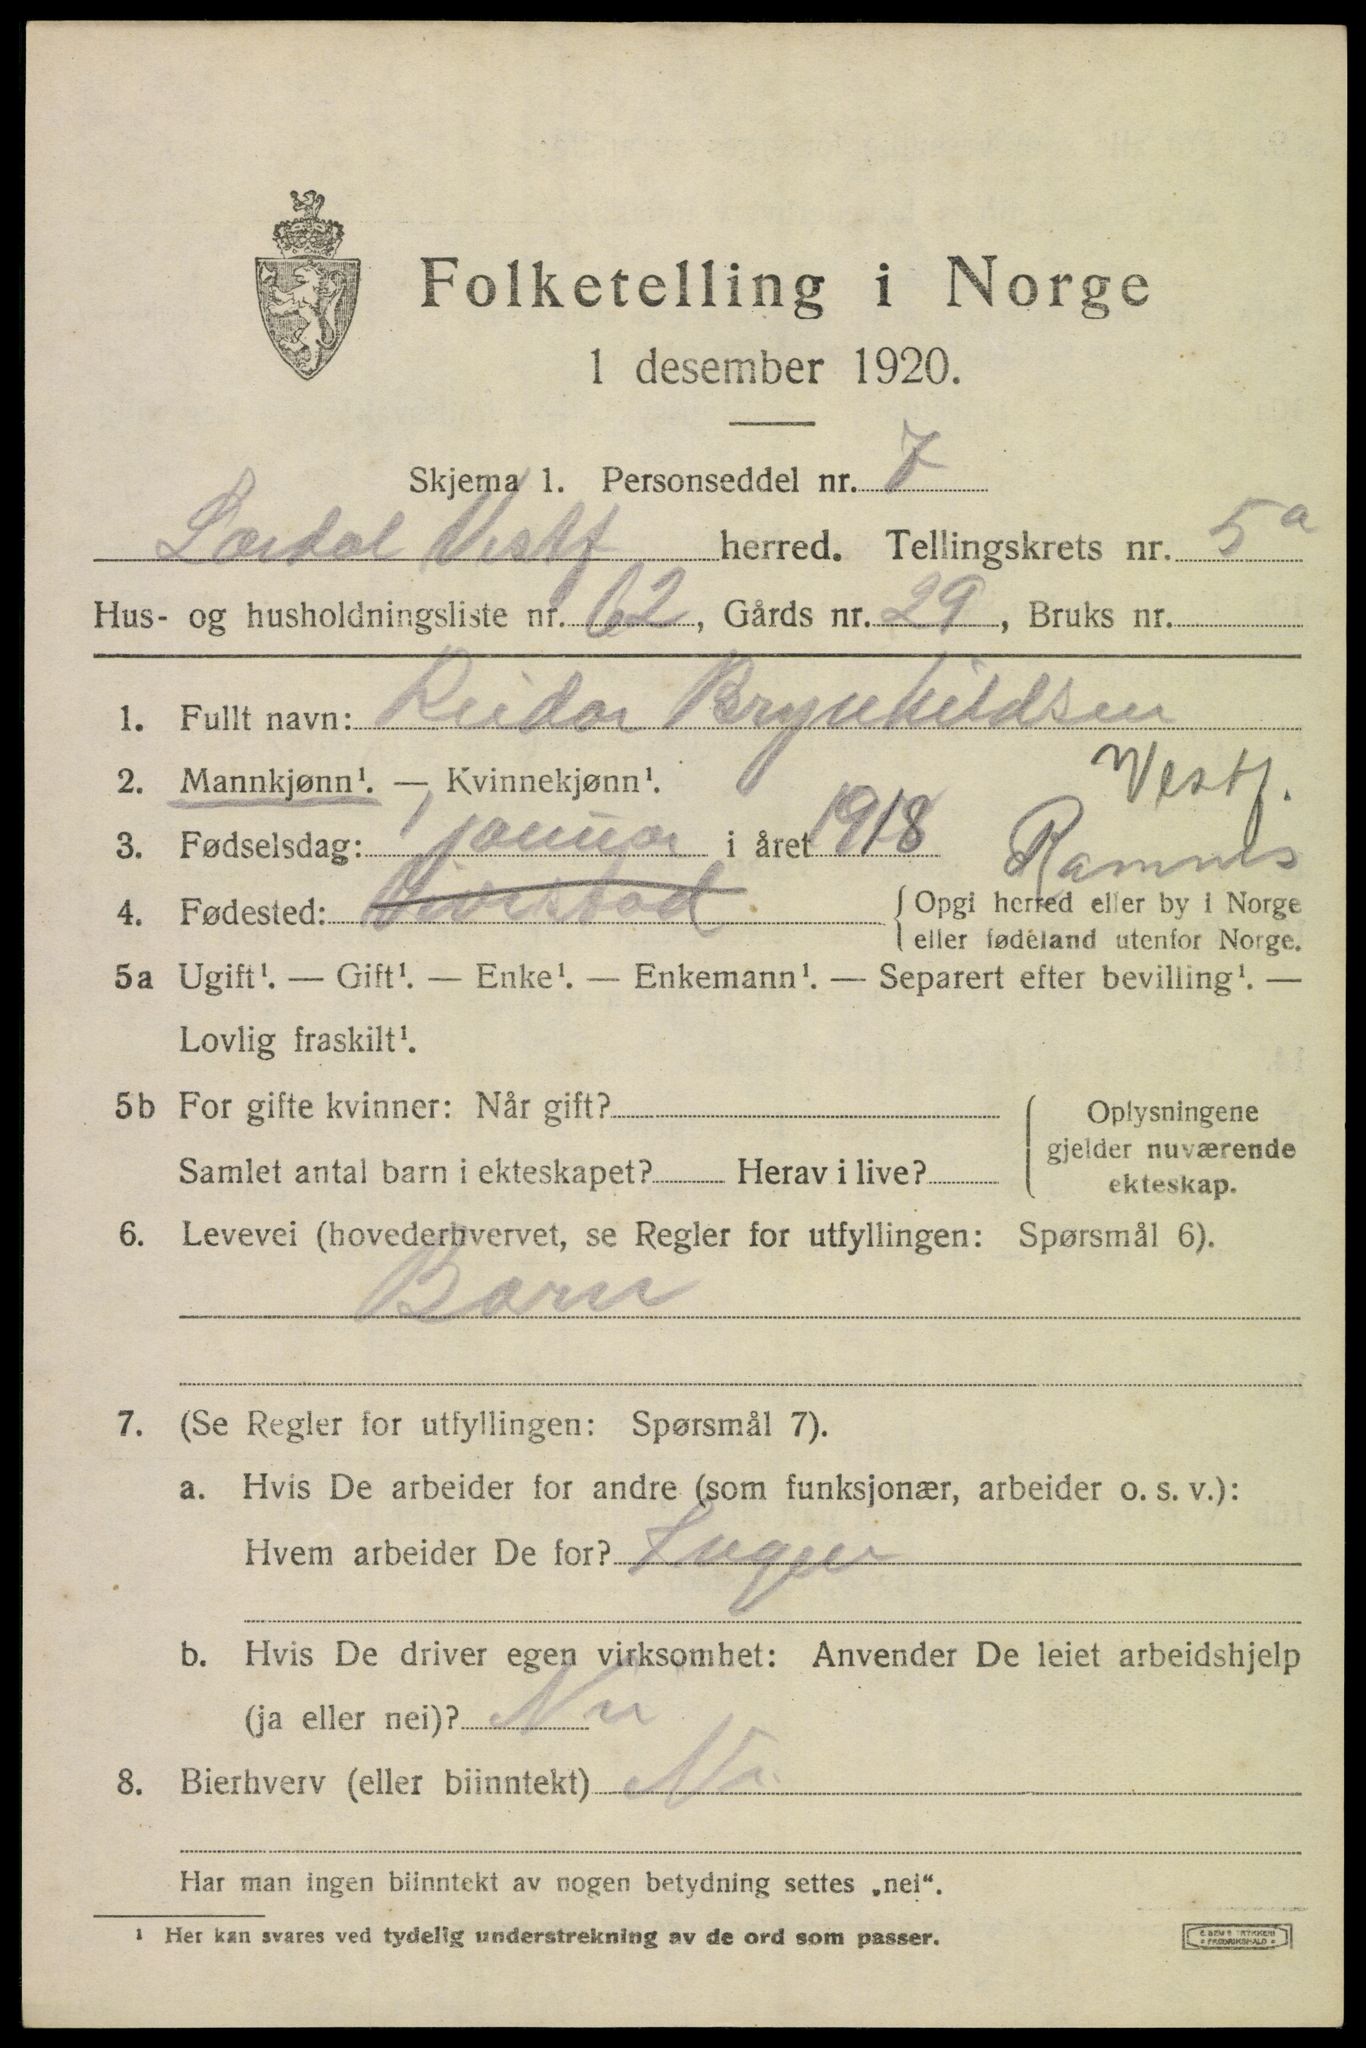 Folketelling i Norge
1 desember 1920.
Skjema 1. Personseddel nr. 7
Lardal Vestf herred. Tellingskrets nr. 5a
Hus- og husholdningsliste nr. 62, Gårds nr. 29, Bruks nr.
1. Fullt navn: Reidar Brynhildsen
2. Mannkjønn¹. — Kvinnekjønn¹.
Vestf.
3. Fødselsdag: 1 januar i året 1918
Ramnes
4. Fødested: Vivestad { Opgi herred eller by i Norge
eller fødeland utenfor Norge.
5a Ugift¹. — Gift¹. — Enke¹. — Enkemann¹. — Separert efter bevilling¹. —
Lovlig fraskilt¹.
5b For gifte kvinner: Når gift?
Samlet antal barn i ekteskapet? Herav i live?
{ Oplysningene
gjelder nuværende
ekteskap.
6. Levevei (hovederhvervet, se Regler for utfyllingen: Spørsmål 6).
Barn
7. (Se Regler for utfyllingen: Spørsmål 7).
a. Hvis De arbeider for andre (som funksjonær, arbeider o. s. v.):
Hvem arbeider De for? Ingen
b. Hvis De driver egen virksomhet: Anvender De leiet arbeidshjelp
(ja eller nei)? Nei
8. Bierhverv (eller biinntekt) Nei
Har man ingen biinntekt av nogen betydning settes „nei“.
¹ Her kan svares ved tydelig understrekning av de ord som passer.